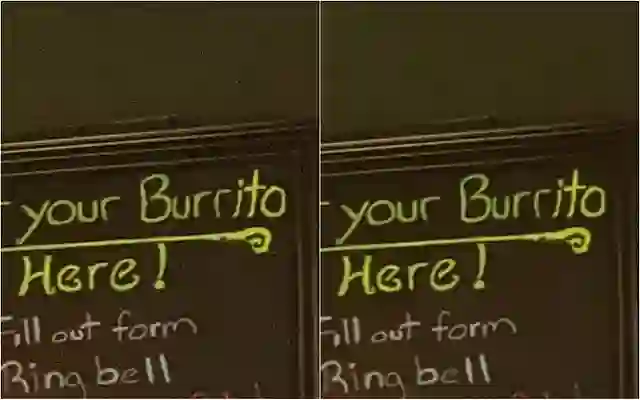 your Burrito your Burrito
Here! Here!
Fill out form Fill out form
Ring bell Ring bell